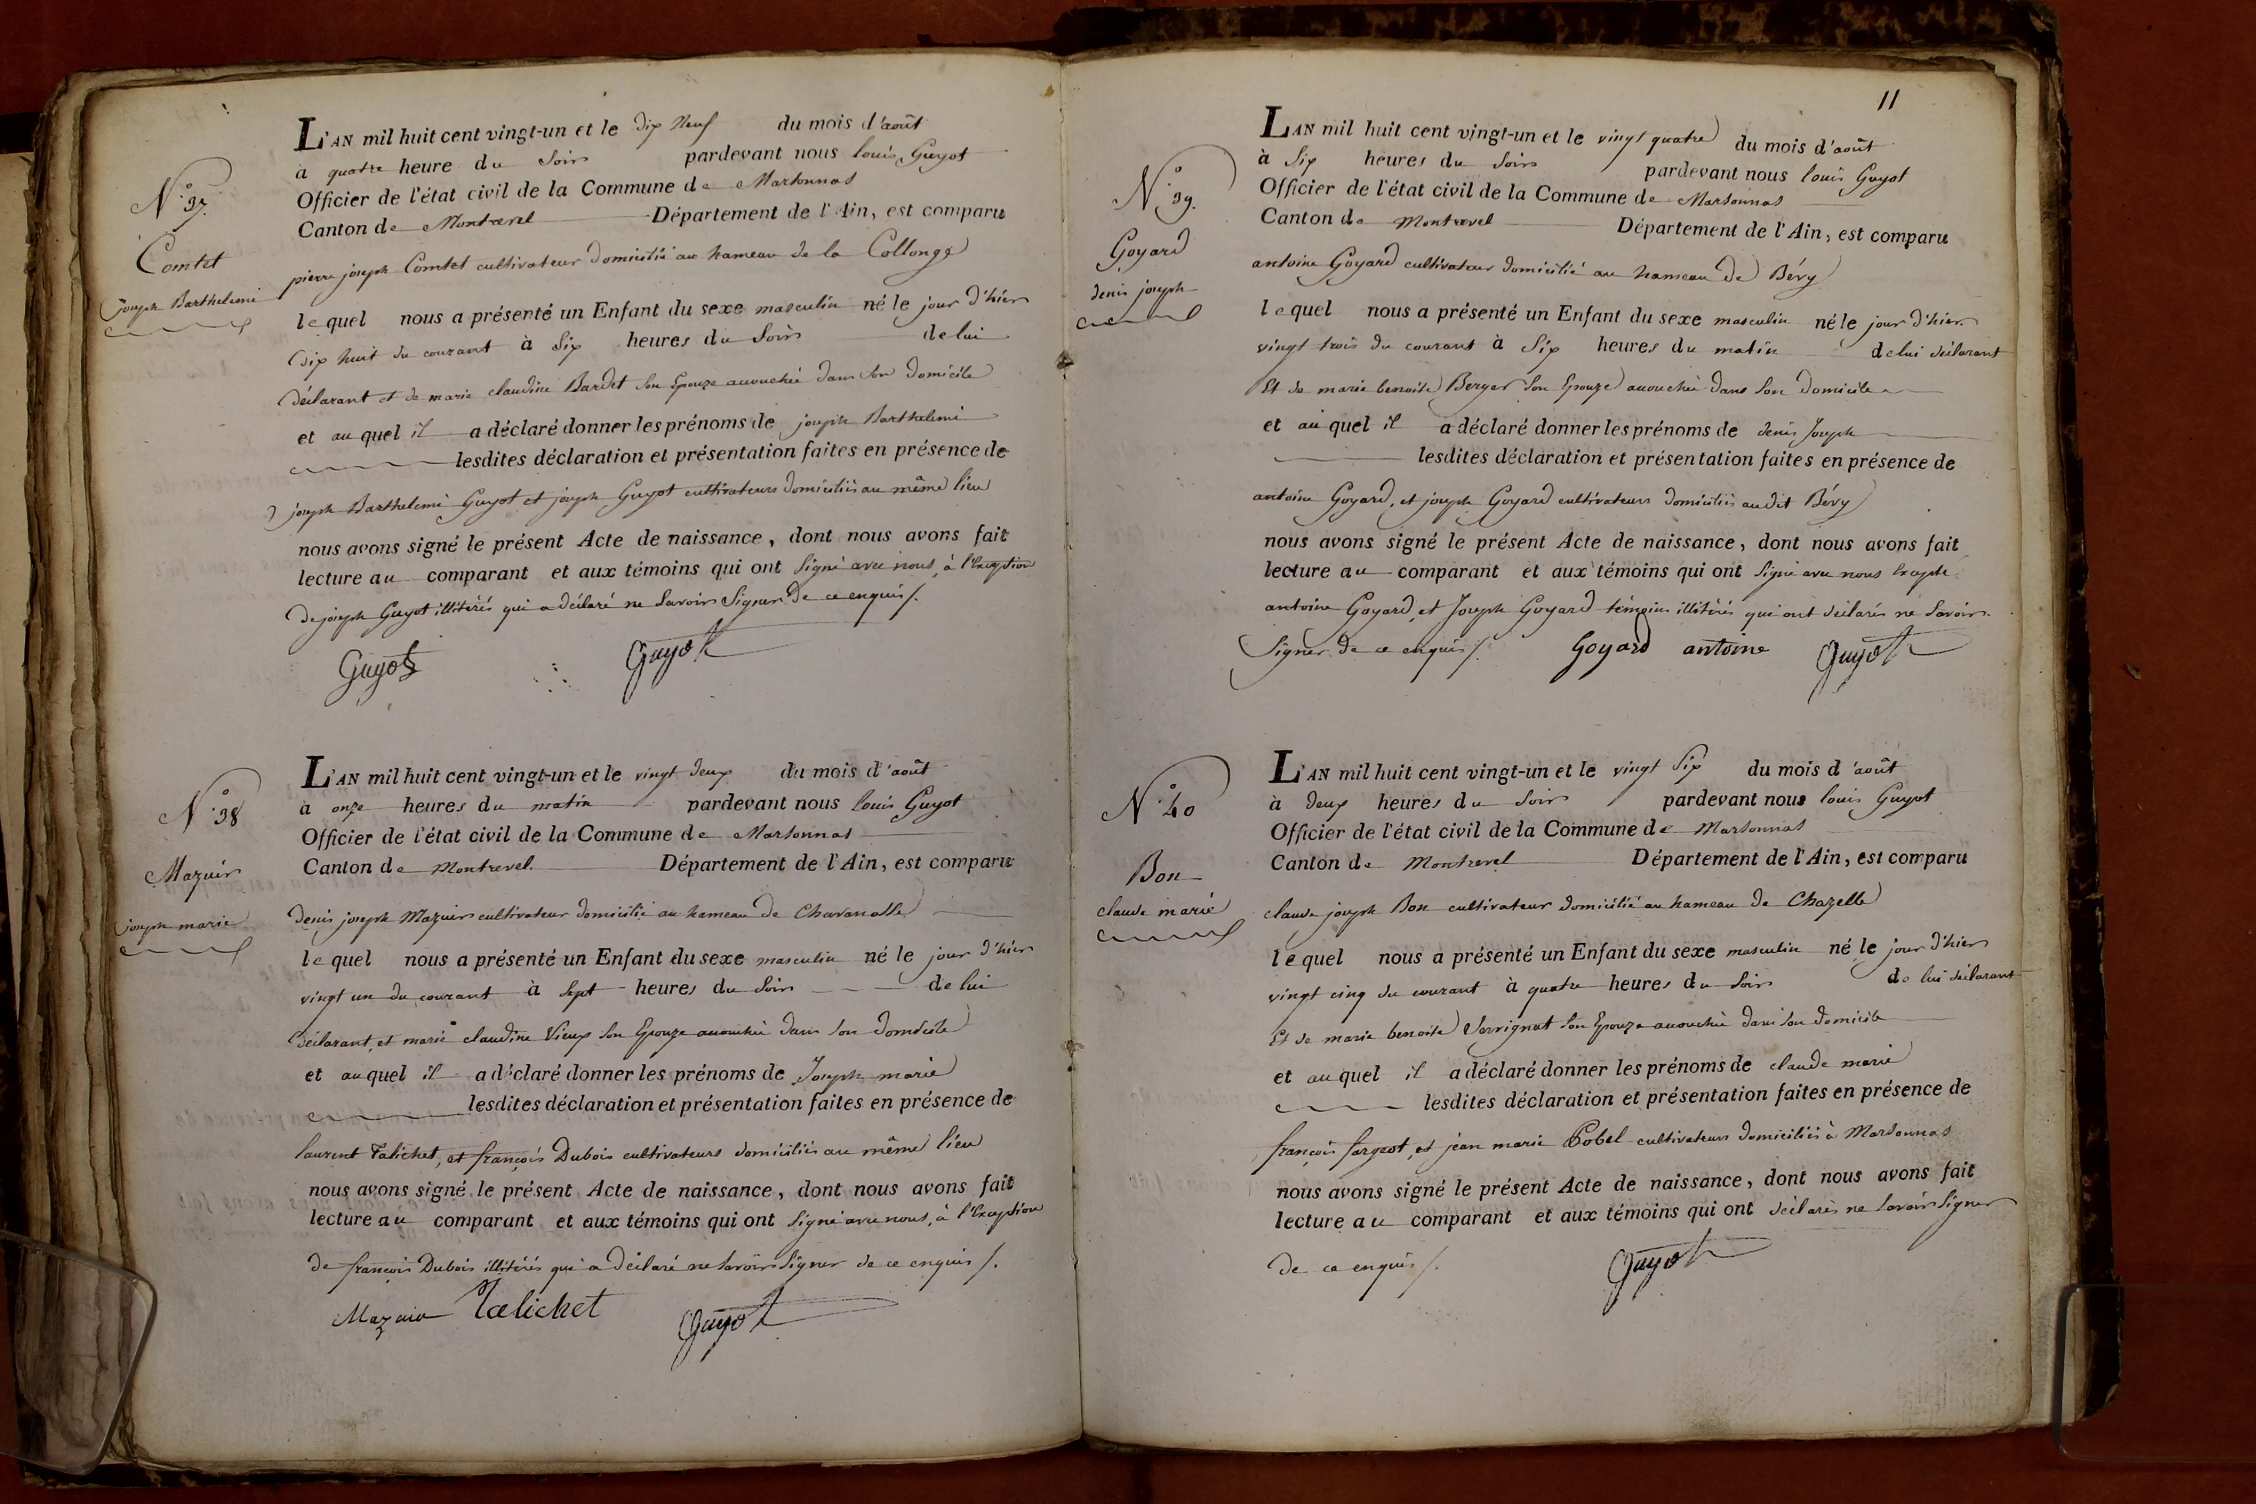 N.° 37.
Comtet
joseph Barthelemi
L'AN mil huit cent vingt-un et le dix Neuf du mois d'août
à quatre heure du Soir pardevant nous louis Guyot
Officier de l'état civil de la Commune de Marsonnas
Canton de Montrevel Département de l'Ain, est comparu
pierre joseph Comtet cultivateur domicilié au hameau de la Collonge
lequel nous a présenté un Enfant du sexe masculin né le jour d'hier
dix huit du courant à Six heures du Soir de lui
déclarant et de marie claudine Bardet son Epouze accouchée dans son domicile
et auquel il a déclaré donner les prénoms de joseph Barthelemi
lesdites déclaration et présentation faites en présence de
joseph Barthelemi Guyot et joseph Guyot cultivateurs domiciliés au même lieu
nous avons signé le présent Acte de naissance, dont nous avons fait
lecture au comparant et aux témoins qui ont Signé avec nous, à l'Exception
de joseph Guyot illitéré qui a déclaré ne Savoir Signer de ce enquis /.
Guyot Guyot
N.° 38
Mazuir
joseph marie
L'AN mil huit cent vingt-un et le vingt deux du mois d'août
à onze heures du matin pardevant nous louis Guyot
Officier de l'état civil de la Commune de Marsonnas
Canton de Montrevel. Département de l'Ain, est comparu
denis joseph Mazuir cultivateur domicilié au hameau de Chavanolle
lequel nous a présenté un Enfant du sexe masculin né le jour d'hier
vingt un du courant à Sept heures du Soir de lui
déclarant, et marie claudine Vieux son Epouze accouchée dans son domicile
et auquel il a déclaré donner les prénoms de Joseph marie
lesdites déclaration et présentation faites en présence de
laurent Talichet, et françois Dubois cultivateurs domiciliés au même lieu
nous avons signé le présent Acte de naissance, dont nous avons fait
lecture au comparant et aux témoins qui ont Signé avec nous, à l'Exception
de françois Dubois illitéré qui a déclaré ne Savoir Signer de ce enquis /.
Mazuir Talichet Guyot
11
N.° 39.
Goyard
denis joseph
L'AN mil huit cent vingt-un et le vingt quatre du mois d'août
à Six heures du Soir pardevant nous louis Guyot
Officier de l'état civil de la Commune de Marsonnas
Canton de Montrevel Département de l'Ain, est comparu
antoine Goyard cultivateur domicilié au hameau de Bévy
lequel nous a présenté un Enfant du sexe masculin né le jour d'hier
vingt trois du courant à Six heures du matin de lui déclarant
Et de marie benoite Berger Son Epouze accouchée dans Son domicile
et auquel il a déclaré donner les prénoms de denis Joseph
lesdites déclaration et présentation faites en présence de
antoine Goyard, et joseph Goyard cultivateurs domiciliés audit Bévy
nous avons signé le présent Acte de naissance, dont nous avons fait
lecture au comparant et aux témoins qui ont Signé avec nous Excepté
antoine Goyard, et Joseph Goyard témoins illitérés qui ont déclarés ne Savoir
Signer de ce enquis /. Goyard antoine Guyot
N.° 40
Bon
claude marie
L'AN mil huit cent vingt-un et le vingt Six du mois d'août
à deux heures du Soir pardevant nous louis Guyot
Officier de l'état civil de la Commune de Marsonnas
Canton de Montrevel Département de l'Ain, est comparu
claude joseph Bon cultivateur domicilié au hameau de Chazelle
lequel nous a présenté un Enfant du sexe masculin né le jour d'hier
vingt cinq du courant à quatre heures du Soir de lui déclarant
Et de marie benoite Son Epouze accouchée dans Son domicile
et auquel il a déclaré donner les prénoms de claude marie
lesdites déclaration et présentation faites en présence de
françois fargeot, et jean marie Pobel cultivateurs domiciliés à Marsonnas
nous avons signé le présent Acte de naissance, dont nous avons fait
lecture au comparant et aux témoins qui ont déclarés ne Savoir Signer
de ce enquis /. Guyot